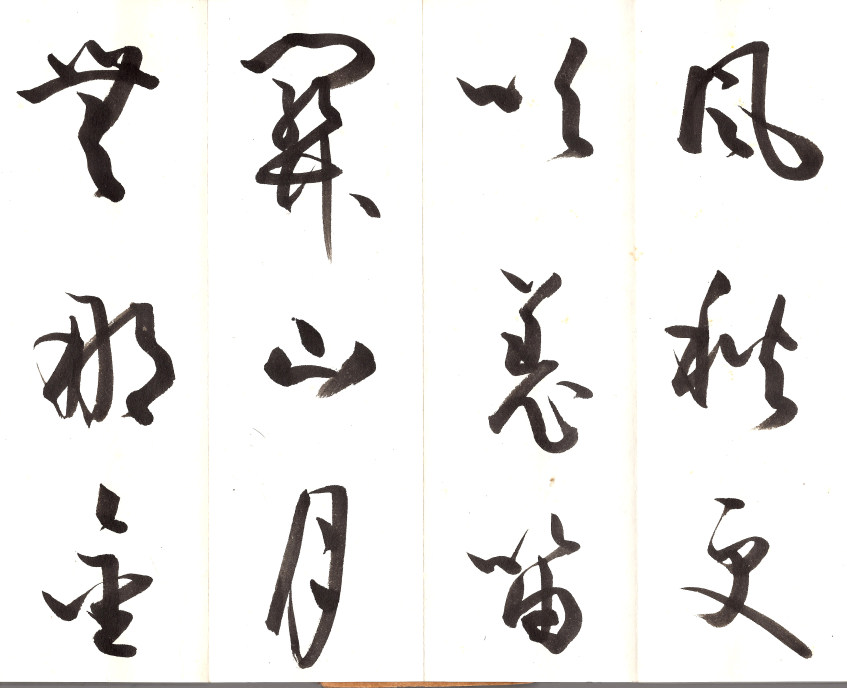 風秋更
吹羌笛
關山月
無那金